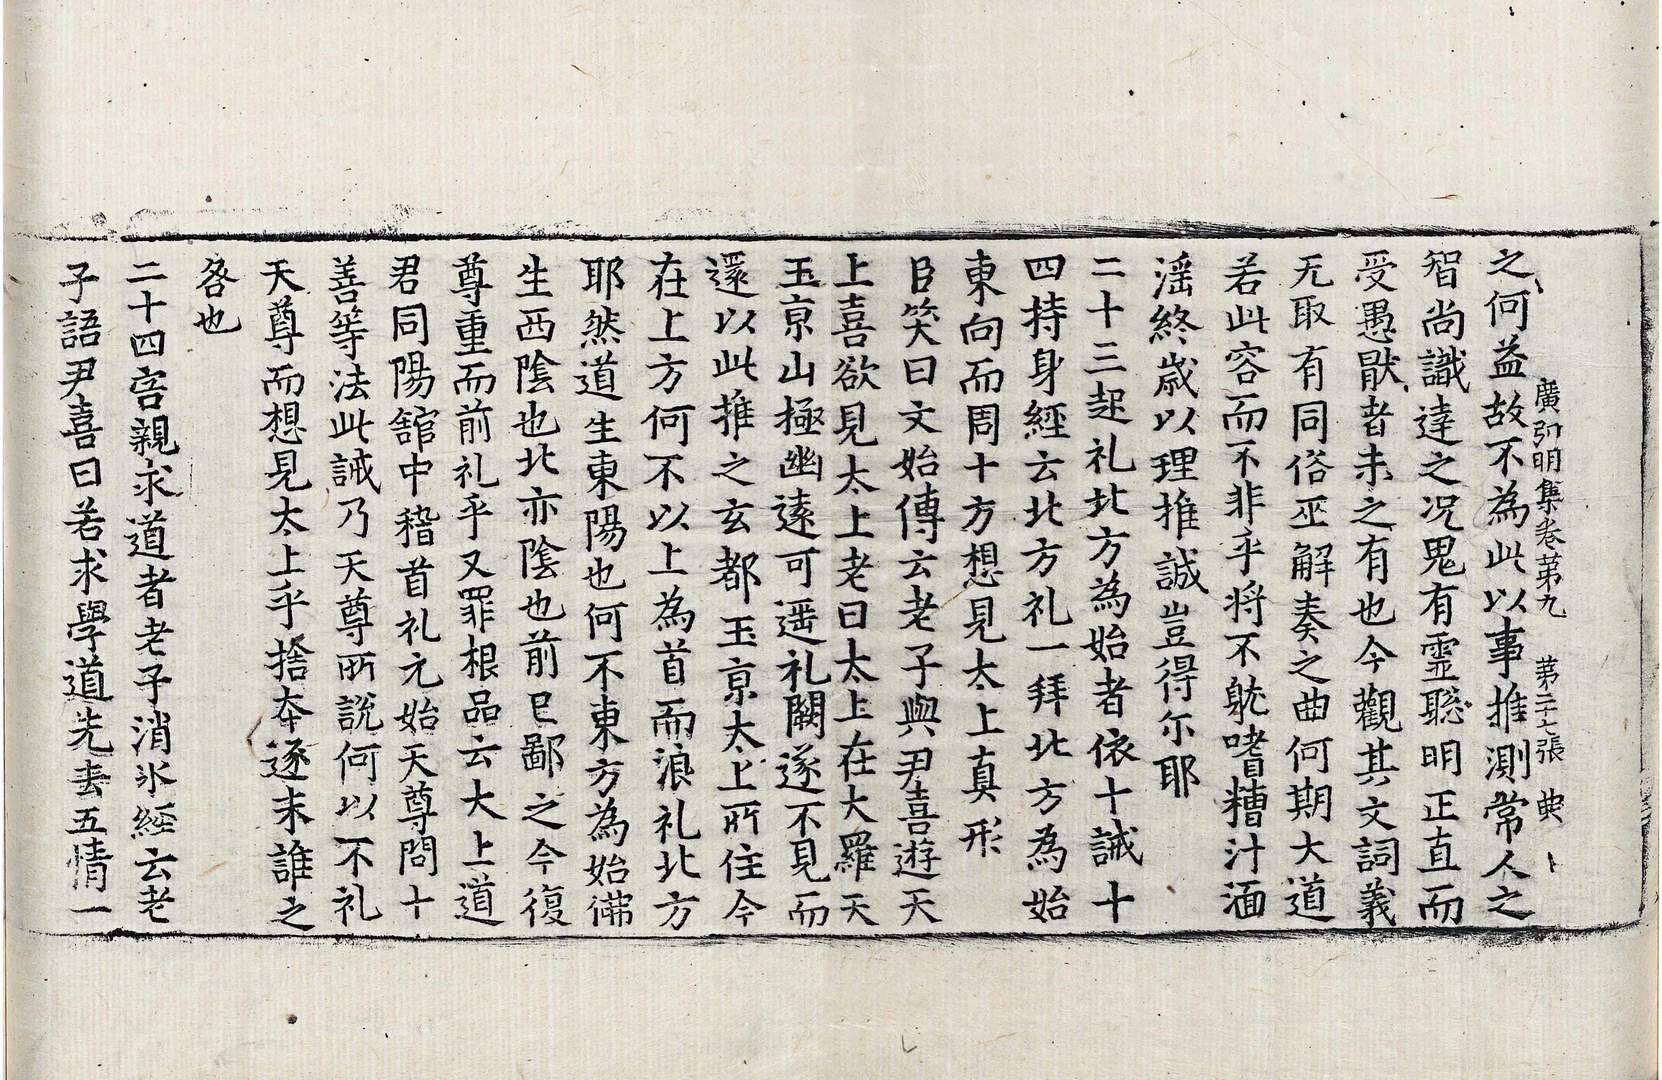 之何益故不為此以事推測常人之
廣弘明集卷第九 第二十七張 典
智尚識達之况鬼有霊聡明正直而
受愚猒者未之有也今觀其文詞義
无取有同俗巫解奏之曲何期大道
若此容而不非乎将不躭嗜糟汁湎
滛終歳以理推誠豈得尓耶
二十三起礼北方為始者依十誡十
四持身經云北方礼一拜北方為始
東向而周十方想見太上真形
臣笑曰文始傳云老子與尹喜遊天
上喜欲見太上老曰太上在大羅天
玉京山極幽遠可遥礼闕遂不見而
還以此推之玄都玉京太上所住今
在上方何不以上為首而浪礼北方
耶然道生東陽也何不東方為始佛
生西隂也北亦隂也前已鄙之今復
尊重而前礼乎又罪根品云大上道
君同陽館中稽首礼元始天尊問十
善等法此誡乃天尊所説何以不礼
天尊而想見太上乎捨本逐末誰之
咎也
二十四害親求道者老子消氷經云老
子語尹喜曰若求學道先去五情一